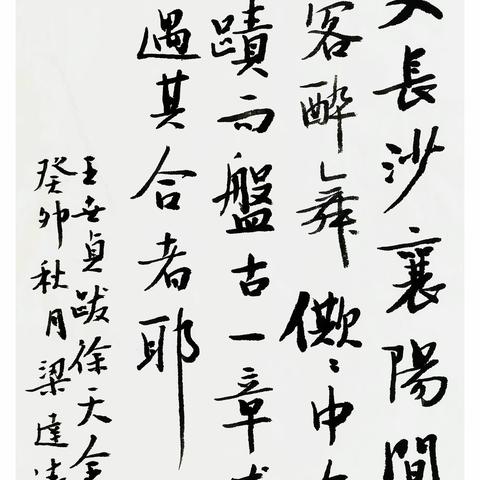 長沙襄陽間
客醉舞僛〻中
蹟而盤古一章
遇其合者耶
王世貞跋徐天全
癸卯秋月梁達